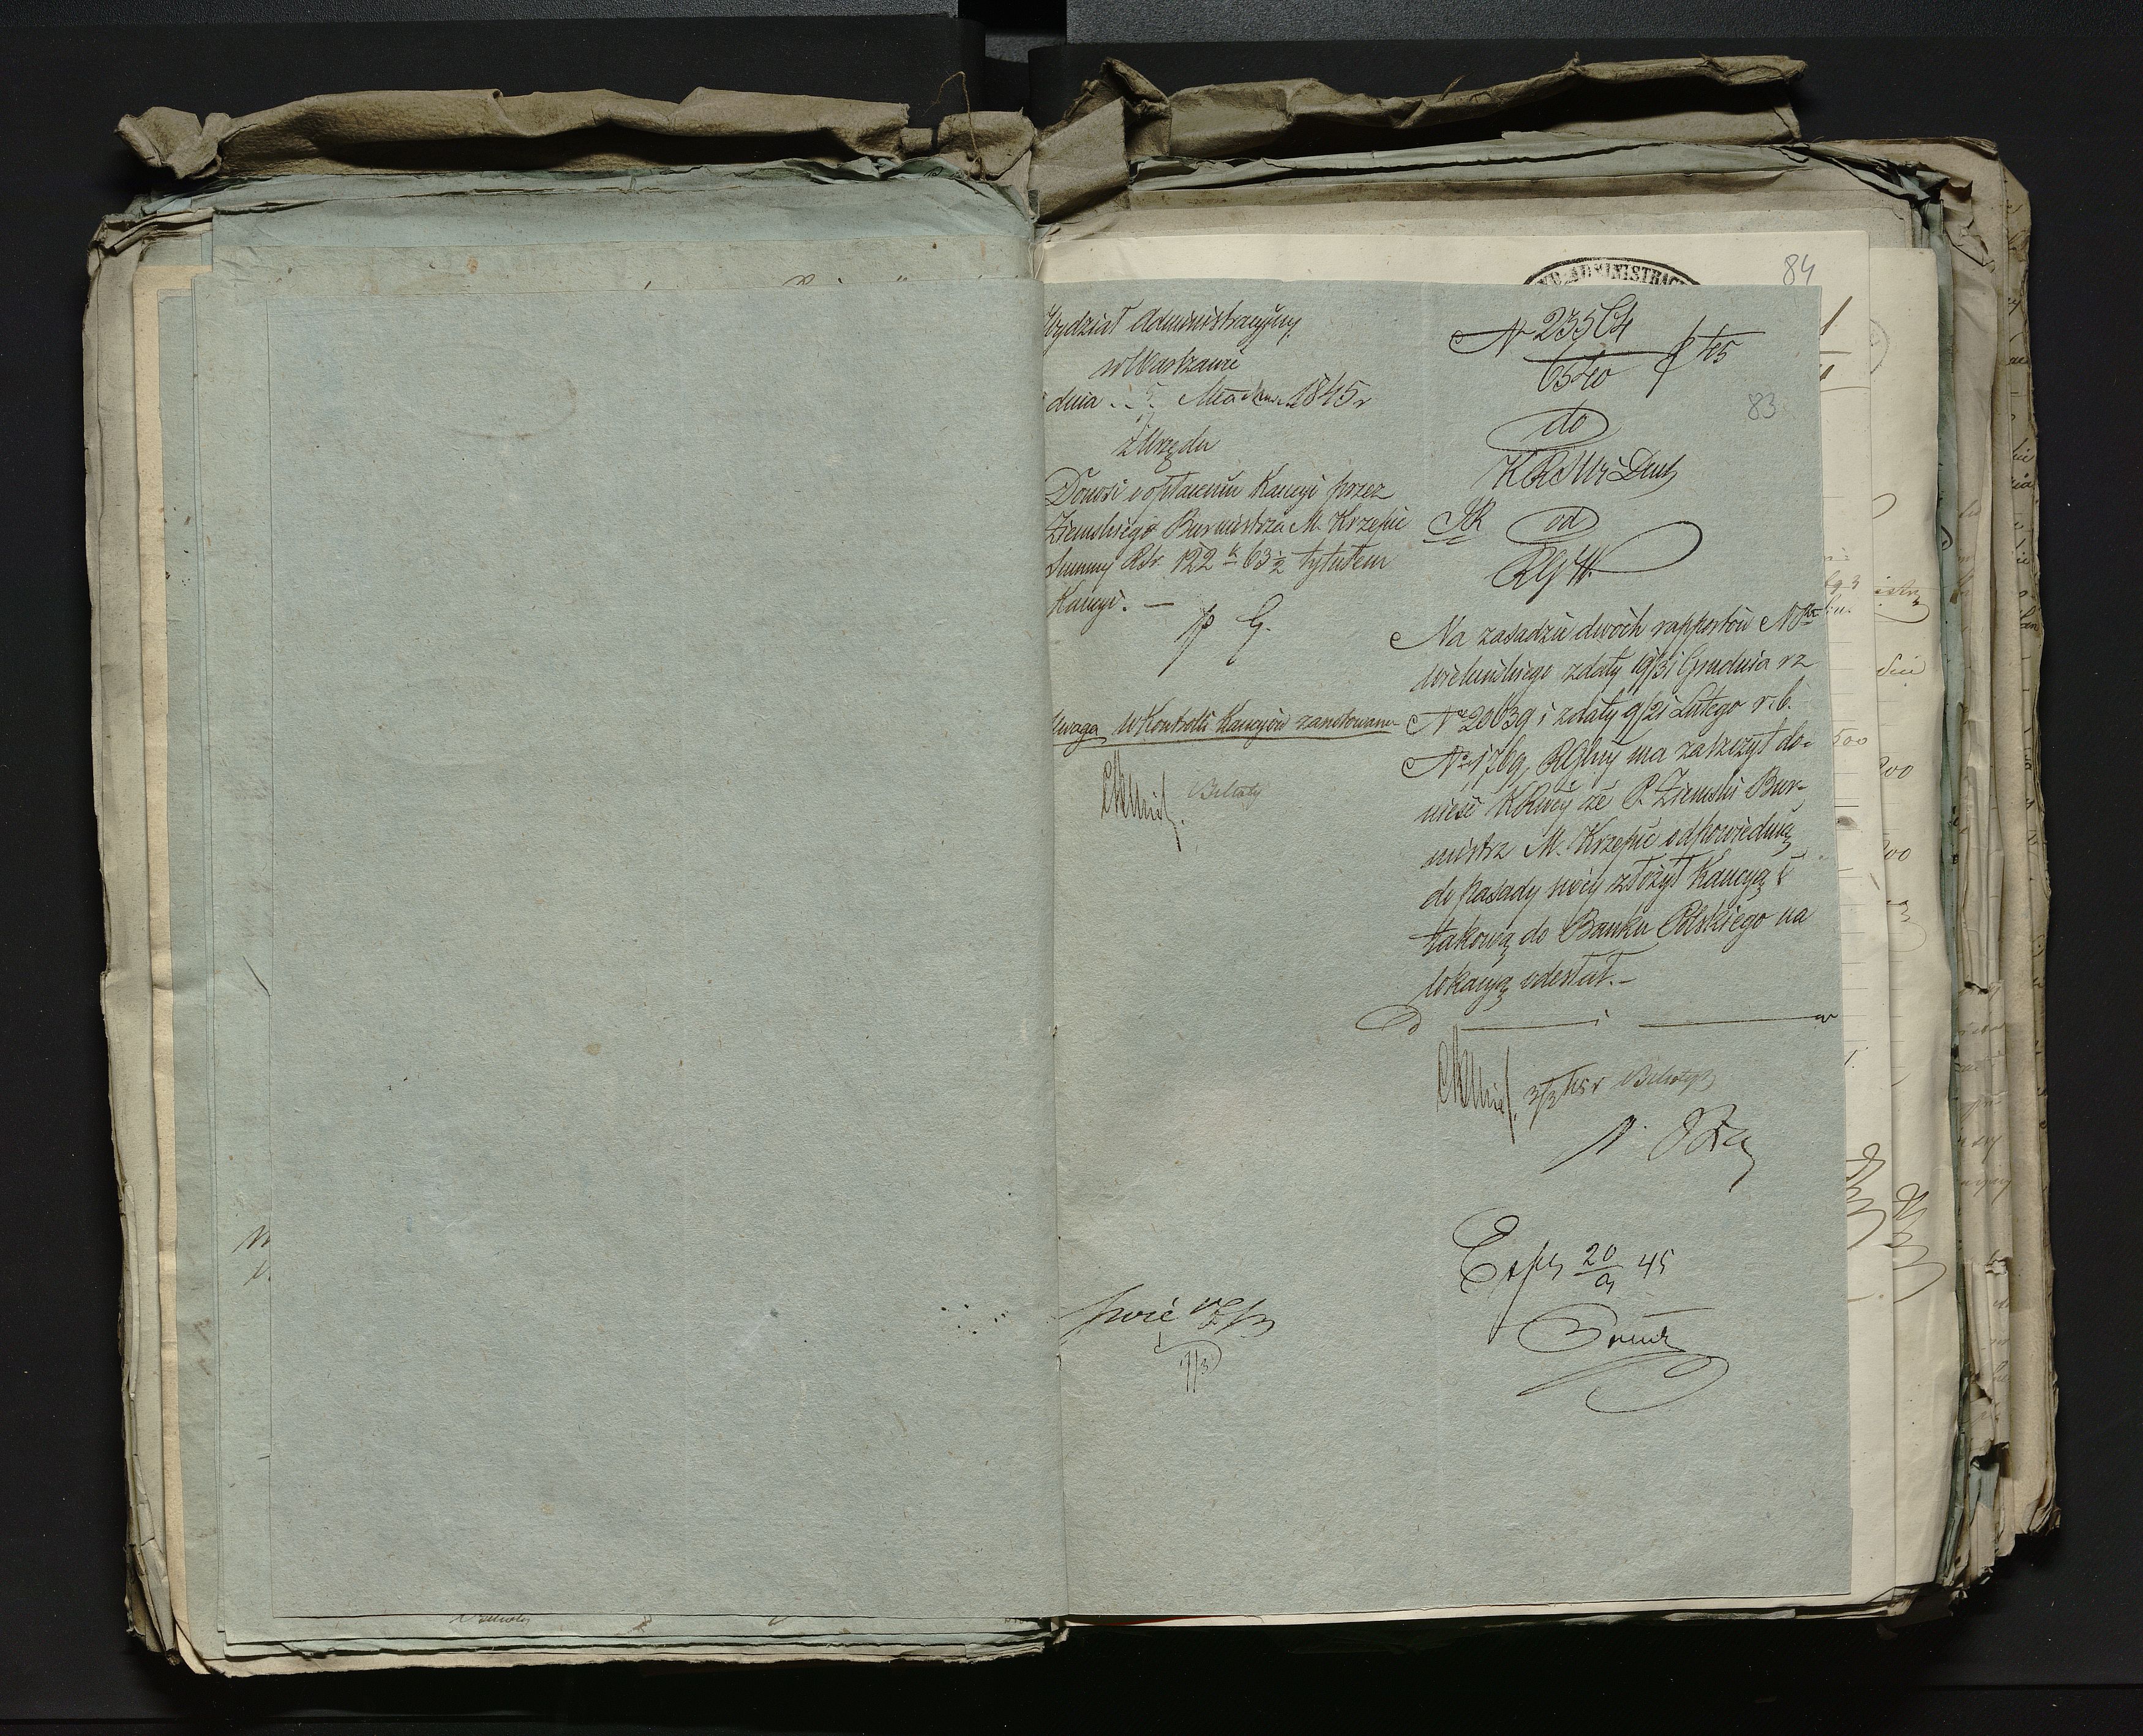 Wydział Administracyjny
w Warszawie
dnia 5 Marca 1845 r
z Urzędu
Donosi o opłaceniu Kaucyi przez
Ziemskiego Burmistrza M. Krzepic
Summy Rsr. 122 k 63½ tytułem
Kaucyi. —
p G.
Uwaga W Kontrolli Kaucyów zanotowano
84
ADMINISTRAC
83
N 23564 / 6540 / 45
do
KRSWiDuch
SR od
RGW.
Na zasadzie dwóch rapportów NPtu
Wieluńskiego z daty 19/31 Grudnia r z
Nr 20639 i z daty 9/21 Lutego r. b.
Nr 1769, RGlny ma zaszczyt do-
nieść KRwéy że P. Ziemski Bur-
mistrz M. Krzepic odpowiednią
do posady swéy złożył Kaucyą i
takową do Banku Polskiego na
lokacyą odesłał. —
3/3 45 r
Exp 20/3 45